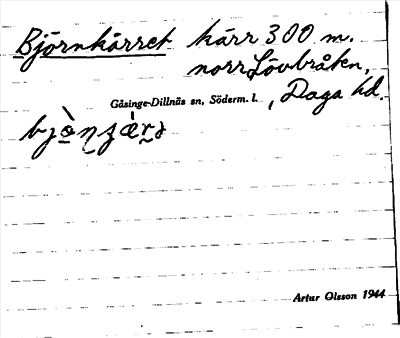 Björnkärret kärr 300 m.
norr Lövbråten,
Gåsinge-Dillnäs sn, Söderm. l. , Daga hd.
Artur Olsson 1944